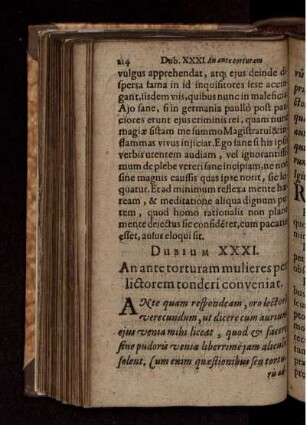 214 Dub. XXXI. An ante torturam
vulgus apprehendat, atq; ejus deinde di-
spersa fama in id inquisitores sese accin-
gant, iisdem viis, quibus nunc in maleficia.
Ajo sane, si in germania paullò post pau-
ciores erunt ejus criminis rei, quam nunc
magiæ sistam me summo Magistratui & in
flammas vivus injiciar. Ego sane si his ipsis
verbis utentem audiam, vel ignorantissi-
mum de plebe vereri sane incipiam, ne non
sine magnis caussis quas ipse norit, sic lo-
quatur. Et ad minimum reflexa mente hæ-
ream, & meditatione aliqua dignum pu-
tem, quod homo rationalis non plane
mente dejectus sic considēret, cum pacatus
esset, ausus eloqui sit.
Dubium XXXI.
An ante torturam mulieres per
lictorem tonderi conveniat.
ANte quam respondeam, oro lectorē
verecundum, ut dicere cum aurium
ejus venia mihi liceat, quod & facere
sine pudoris venia liberrimè jam alicubi
solent. Cum enim quæstionibus seu tortu-